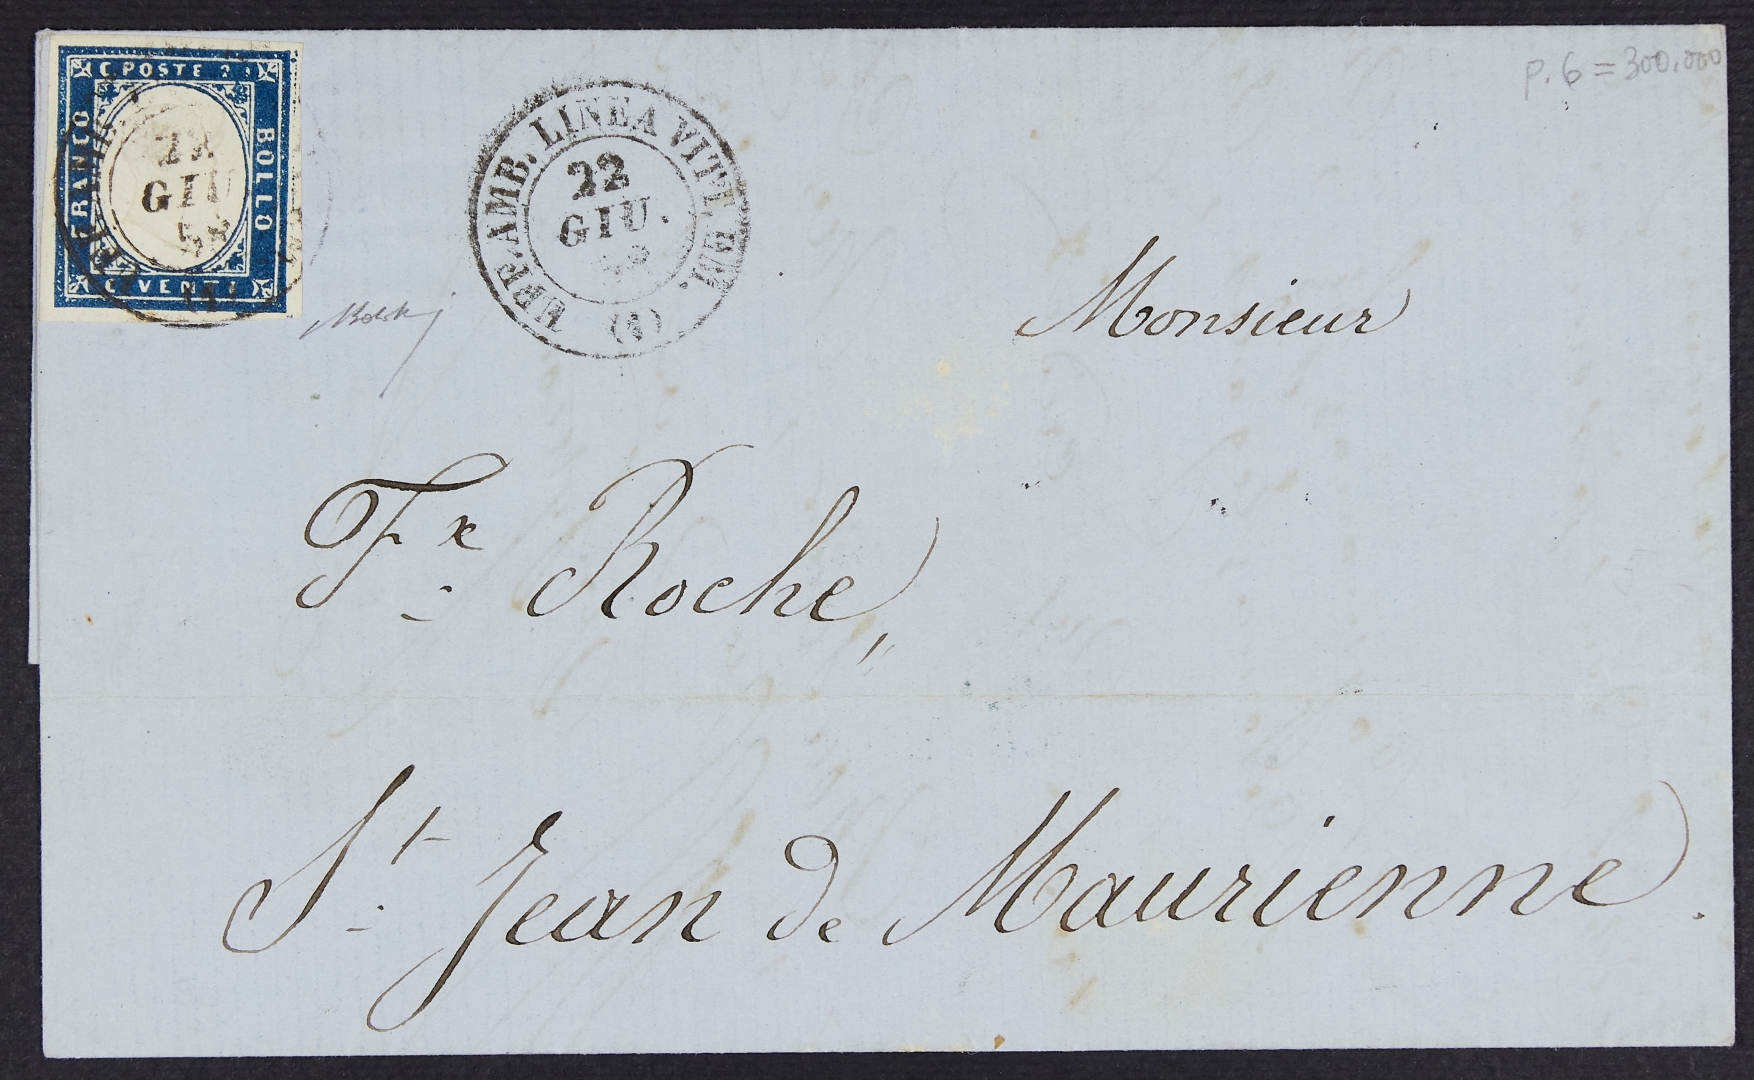 C. POSTE 20
FRANCO
BOLLO
C VENTI
22
GIU
58
UFF. AMB. LINEA VITT. EM.
22
GIU.
(4)
p. 6 = 300.000
Monsieur
Fx Roche,
St Jean de Maurienne.